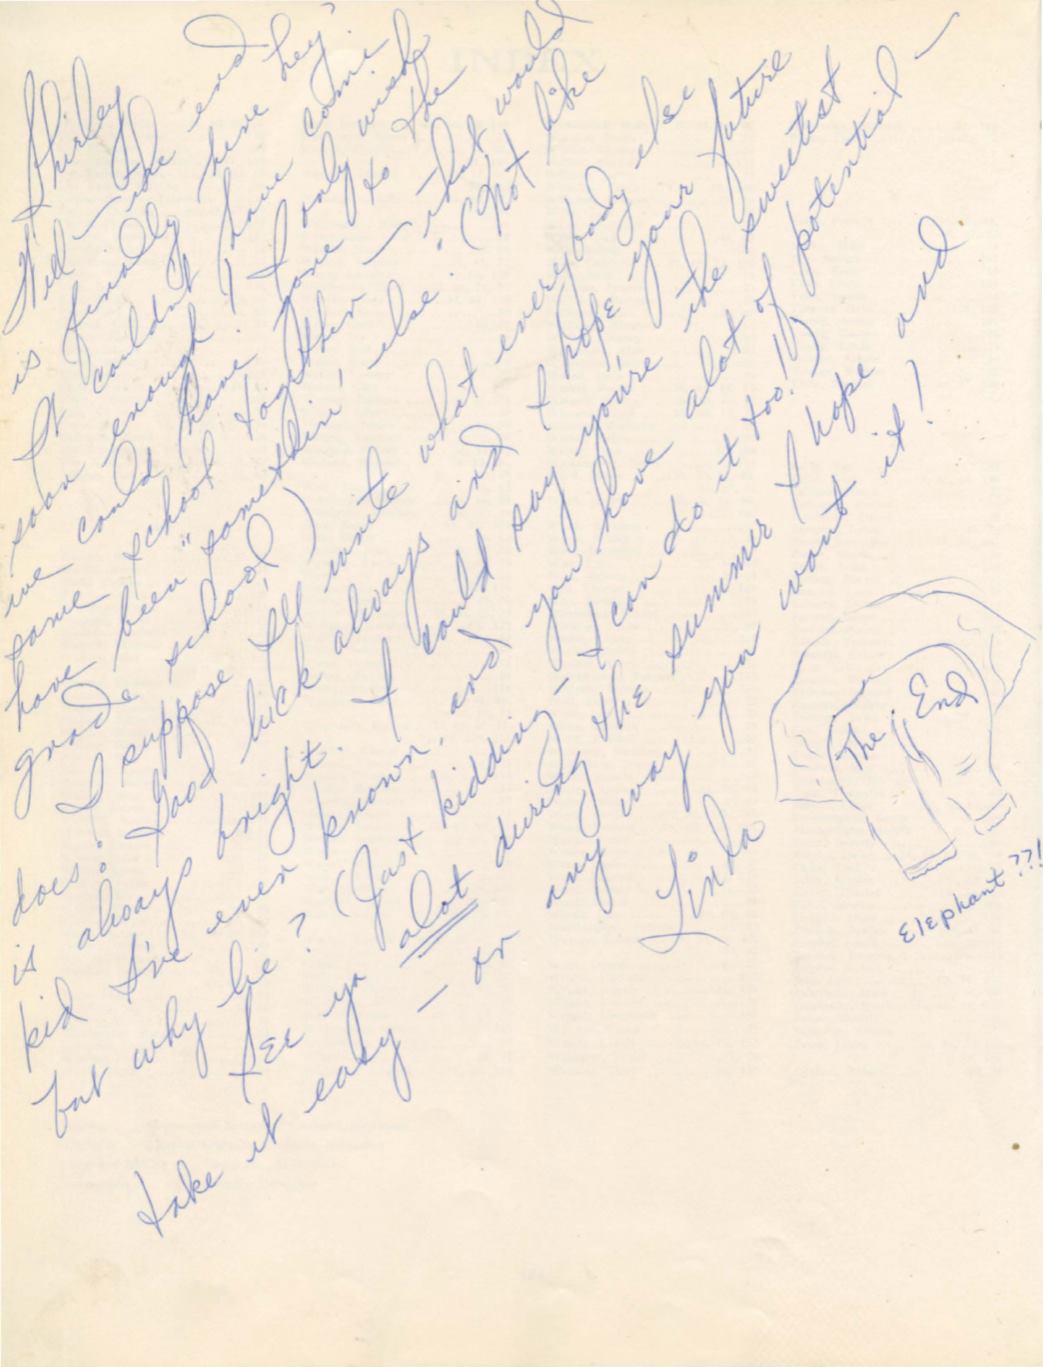 INDEX
Shirley
Well — the end
is finally here hey?
It couldn't have come
soon enough! I only wish
we could have gone to the
same school together — that would
have been "somethin' else." (Not like
grade school!)
I suppose I'll write what everybody else
does: Good luck always and I hope your future
is always bright. I could say you're the sweetest
kid I've ever known, and you have alot of potential —
but why lie? (Just kidding — I can do it too!!)
See ya alot during the summer I hope and
take it easy — or any way you want it!
Linda
The End
Elephant??!